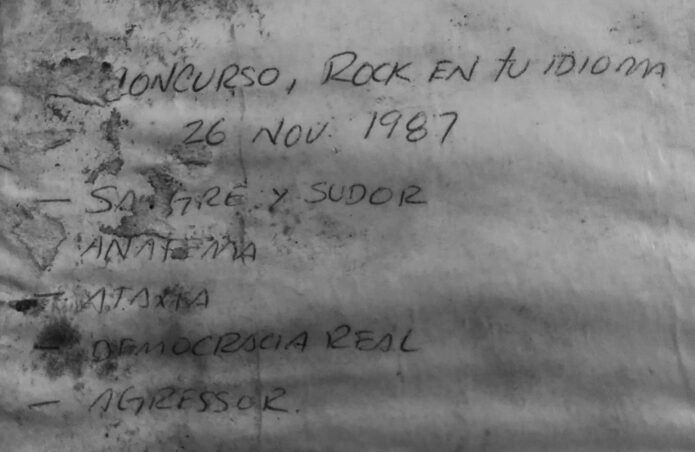 CONCURSO, ROCK EN tU IDIOMA
26 NOV. 1987
— SANGRE Y SUDOR
ANATEMA
— ATAXIA
— DEMOCRACIA REAL
— AGRESSOR.